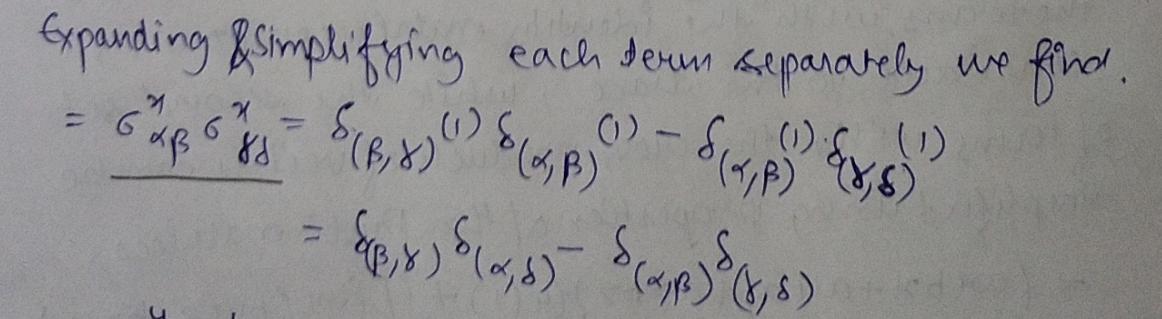 Expanding & Simplifying each term separately we find.
= σ^x_αβ σ^x_γδ = δ_(β,γ)^(1) δ_(α,β)^(1) - δ_(α,β)^(1) · δ_(γ,δ)^(1)
= δ_(β,γ) δ_(α,δ) - δ_(α,β) δ_(γ,δ)